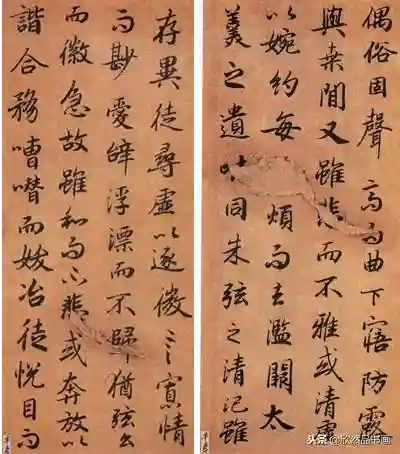 存異徒尋虛以逐微言寡情
而尠愛辭浮漂而不歸猶弦么
而徽急故雖和而不悲或奔放以
諧合務嘈囋而妖冶徒悅目而
偶俗固聲高而曲下寤防露
與桑間又雖悲而不雅或清虛
以婉約每煩而去濫闕太
羹之遺同朱弦之清汜雖
头条@欣然品书画